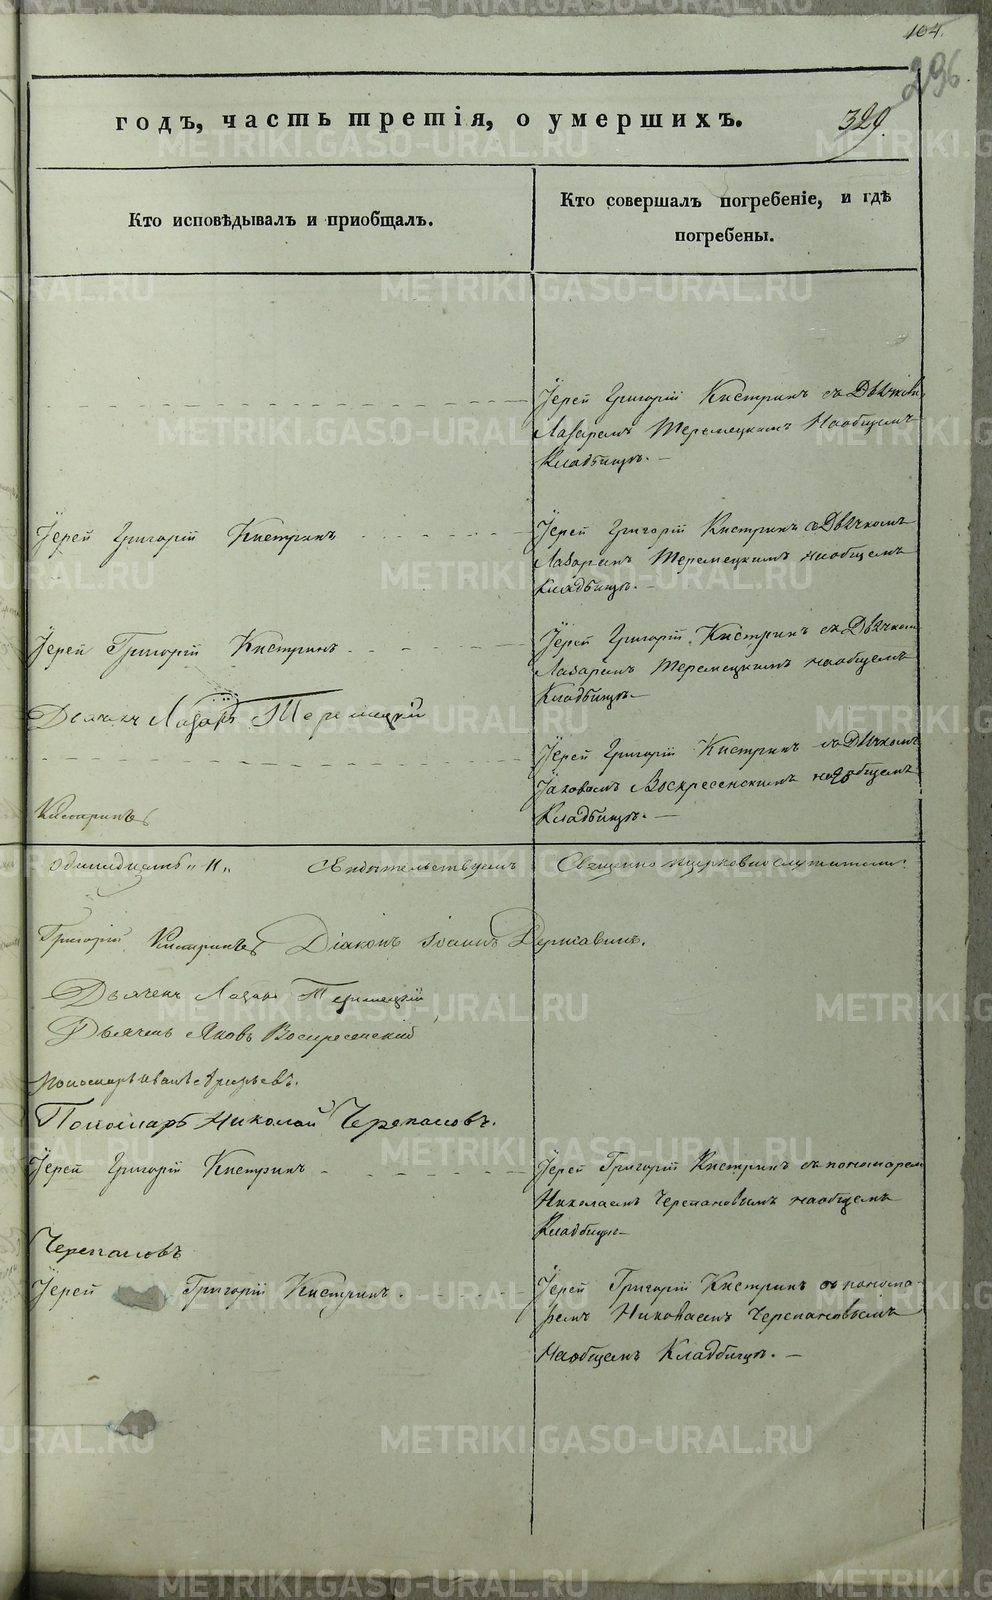 104.
296.
годъ, часть третія, о умершихъ.
329.
Кто исповѣдывалъ и приобщалъ.
Кто совершалъ погребеніе, и гдѣ
погребены.
Іерей Григорій Кистринъ съ Дьячкомъ
Лазаремъ Теремецкимъ Наобщемъ
Кладбищѣ. —
Іерей Григорій Кистринъ
Іерей Григорій Кистринъ съ Дьячкомъ
Лазаремъ Теремецкимъ наобщемъ
Кладбищѣ. —
Іерей Григорій Кистринъ
Іерей Григорій Кистринъ съ Дьячкомъ
Лазаремъ Теремецкимъ наобщемъ
Кладбищѣ —
Дьячекъ Лазарь Теремецкій
Іерей Григорій Кистринъ съ Дьячкомъ
Іаковомъ Воскресенскимъ наобщемъ
Кладбищѣ. —
одинадцать „11„ Свидѣтельствуемъ Священно ицерковнослужители:
Григорій Кистринъ Діаконъ Іоаннъ Державинъ.
Дьячекъ Лазарь Теремецкій
Дьячекъ Яковъ Воскресенскій
Пономарь Николай Черепановъ.
Іерей Григорій Кистринъ
Іерей Григорій Кистринъ съ пономаремъ
Николаемъ Черепановымъ наобщемъ
Кладбищѣ —
Черепановъ
Іерей Григорій Кистринъ.
Іерей Григорій Кистринъ съ понома-
ремъ Николаемъ Черепановымъ
Наобщемъ Кладбищѣ. —
METRIKI.GASO-URAL.RU